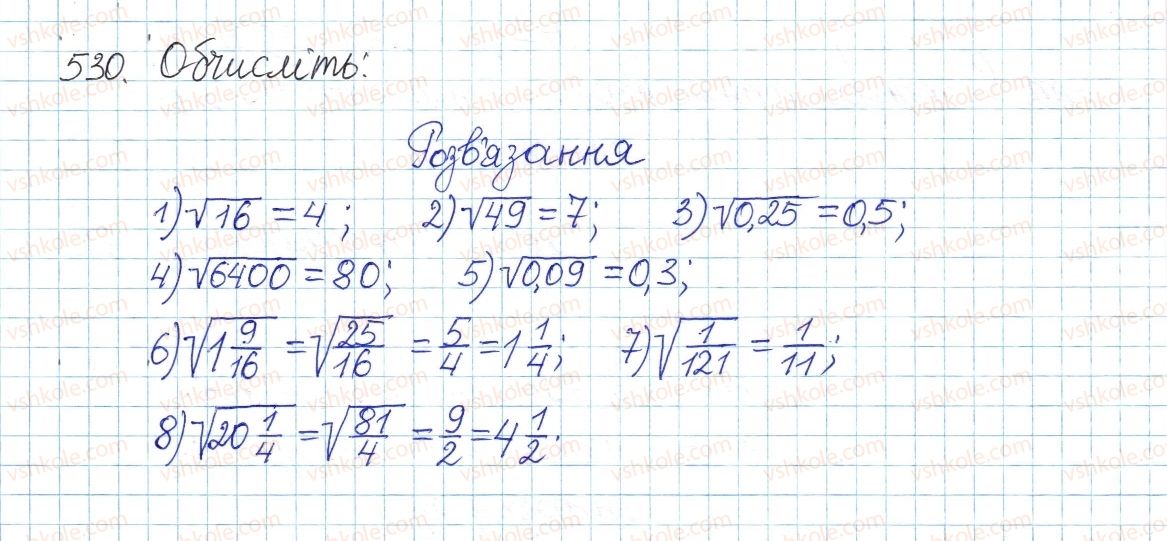 530. Обчисліть:
Розв'язання
1) √16 = 4; 2) √49 = 7; 3) √0,25 = 0,5;
4) √6400 = 80; 5) √0,09 = 0,3;
6) √(1 9/16) = √(25/16) = 5/4 = 1 1/4; 7) √(1/121) = 1/11;
8) √(20 1/4) = √(81/4) = 9/2 = 4 1/2.
vshkole.com